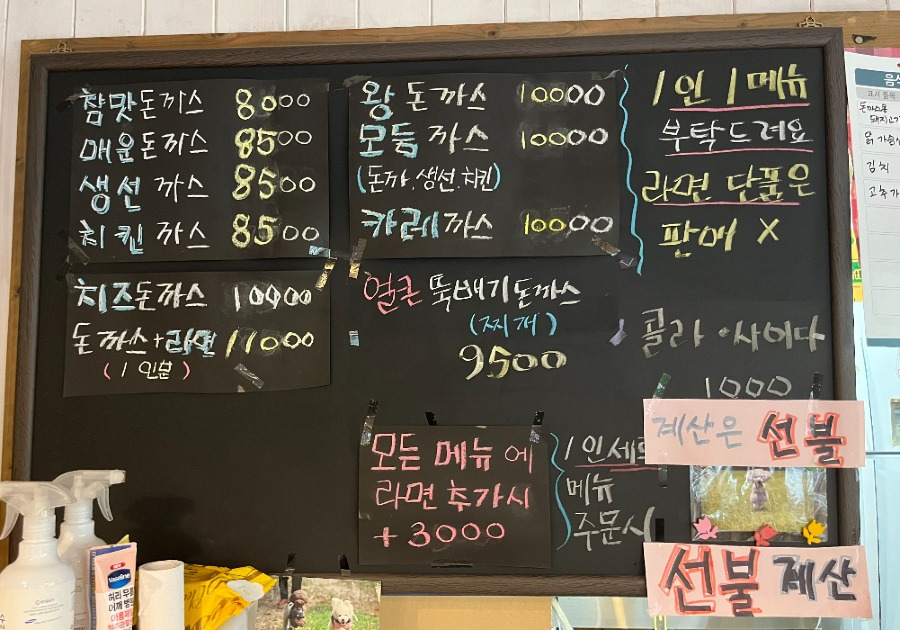 참맛돈까스 8000
매운돈까스 8500
생선까스 8500
치킨까스 8500
치즈돈까스 10000
돈까스+라면 11000
(1인분)
왕돈까스 10000
모듬까스 10000
(돈까.생선.치킨)
카레까스 10000
얼큰 뚝배기돈까스
(찌개)
9500
1인 1메뉴
부탁드려요
라면 단품은
판매 X
콜라·사이다
1000
모든 메뉴에
라면추가시
+3000
1인세트
메뉴
주문시
계산은 선불
선불 계산
Vaseline
허리 무릎
음식
돈까스용
돼지고기
닭가슴
김치
고추가